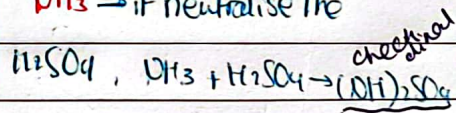 NH3 → it neutralise the
H2SO4, NH3 + H2SO4 → (NH)2SO4